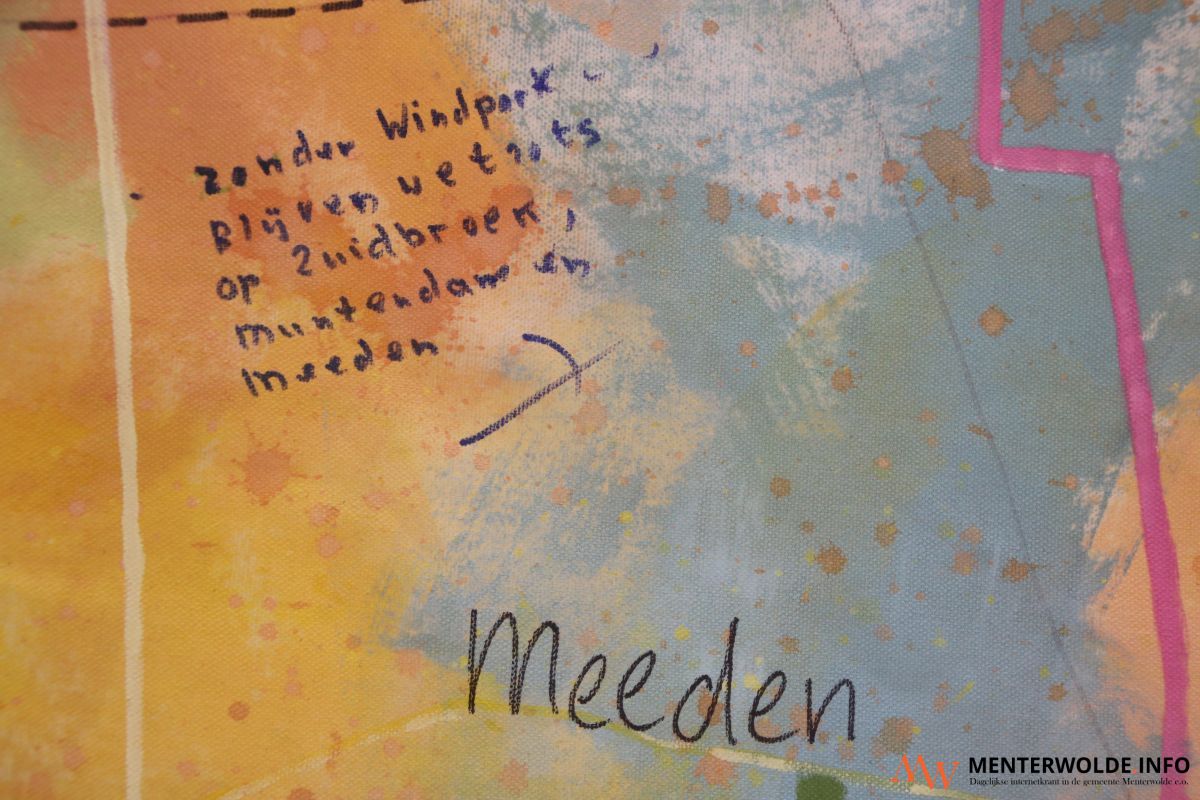 zonder Windpark
Blijven we trots
op Zuidbroek,
muntendam en
meeden
Meeden
MENTERWOLDE.INFO
Dagelijkse internetkrant in de gemeente Menterwolde e.o.